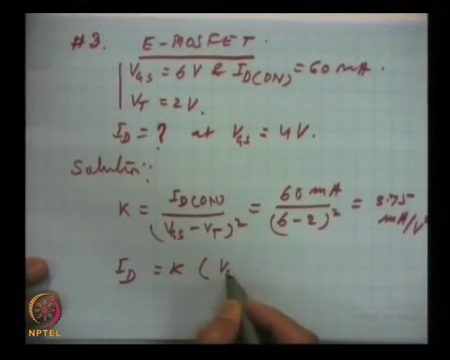 #3. E-MOSFET.
V_GS = 6V & I_D(ON) = 60 mA.
V_T = 2V.
I_D = ? at V_GS = 4V.
Solution:
K = I_D(ON) / (V_GS - V_T)^2 = 60 mA / (6-2)^2 = 3.75 mA/V^2
I_D = K (V
NPTEL